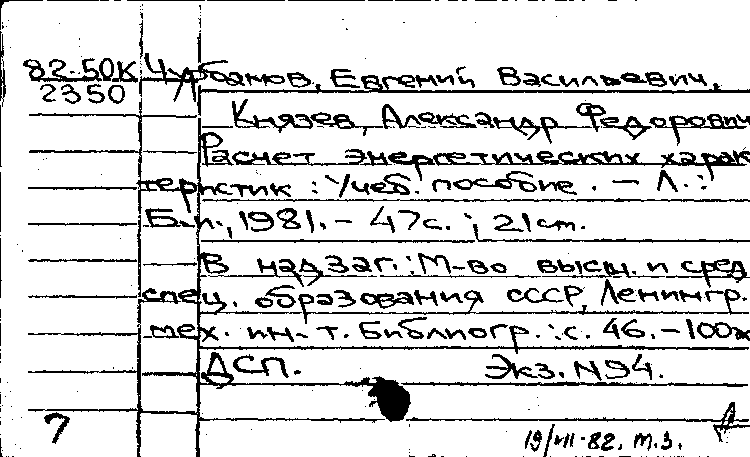 82-50К Чурбанов, Евгений Васильевич,
2350
Князев, Александр Федорович
Расчет энергетических харак
теристик : Учеб. пособие. - Л. :
Б.и., 1981. - 47с. ; 21см.
В надзаг.: М-во высш. и сред
спец. образования СССР, Ленингр.
мех. ин-т. Библиогр.: с. 46. - 100э
ДСП. Экз. N94.
7
19/VII-82. т.з.